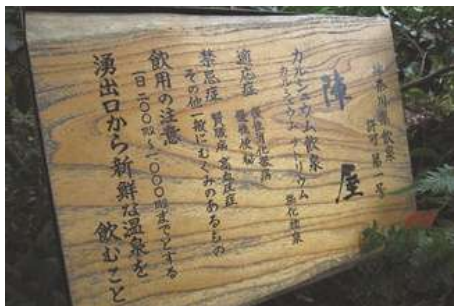 神奈川県飲泉 許可第一号
陣屋
カルシュウム飲泉
カルシュウム ナトリウム 塩化物泉
適応症 慢性消化器病
慢性便秘
禁忌症 腎臓病 高血圧症
その他一般にむくみのあるもの
飲用の注意
一日二〇〇㎖〜一〇〇〇㎖までとする
湧出口から新鮮な温泉を
飲むこと